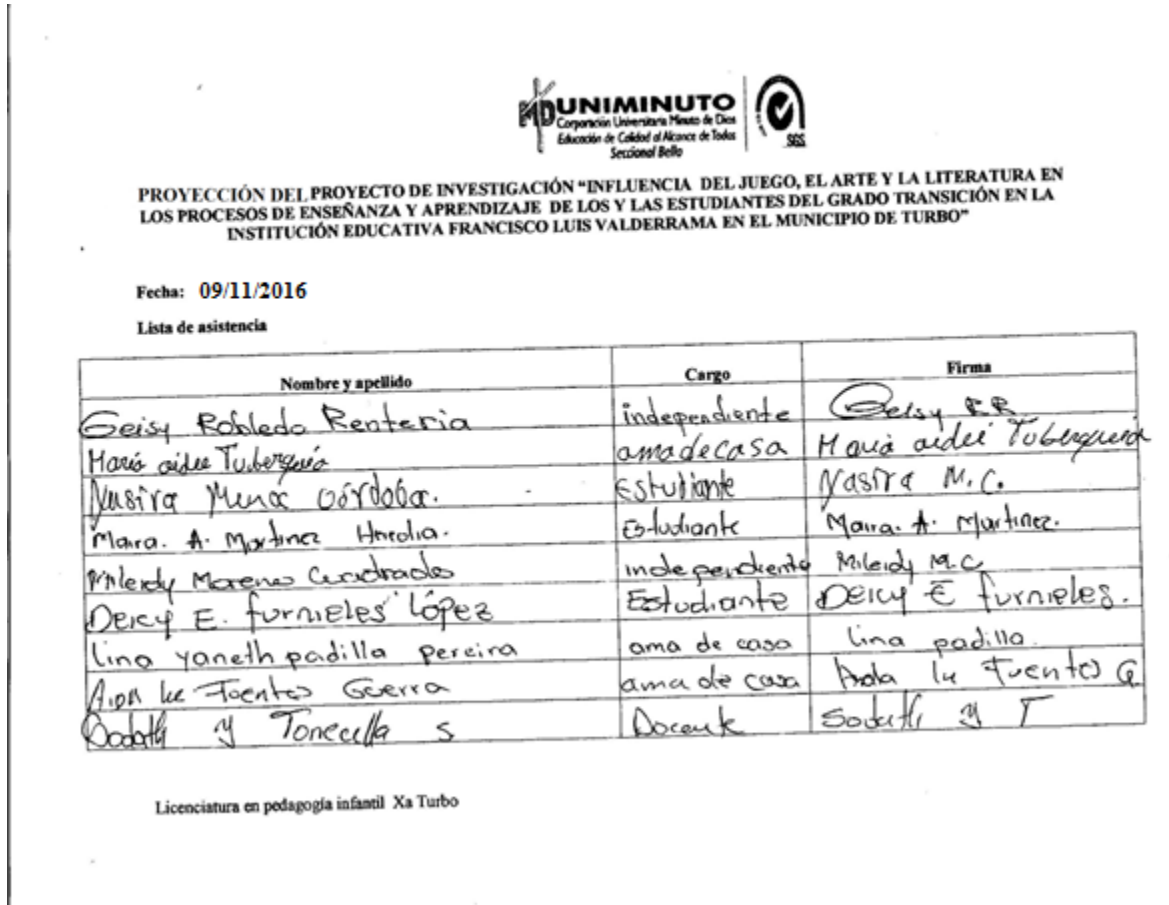 UNIMINUTO
Corporación Universitaria Minuto de Dios
Educación de Calidad al Alcance de Todos
Seccional Bello
SGS
PROYECCIÓN DEL PROYECTO DE INVESTIGACIÓN “INFLUENCIA DEL JUEGO, EL ARTE Y LA LITERATURA EN
LOS PROCESOS DE ENSEÑANZA Y APRENDIZAJE DE LOS Y LAS ESTUDIANTES DEL GRADO TRANSICIÓN EN LA
INSTITUCIÓN EDUCATIVA FRANCISCO LUIS VALDERRAMA EN EL MUNICIPIO DE TURBO”
Fecha: 09/11/2016
Lista de asistencia
Nombre y apellido Cargo Firma
Geisy Robledo Renteria independiente Geisy RR
Maria aidee Tuberquia ama de casa Maria aidee Tuberquia
Yasira Mena Córdoba. Estudiante Yasira M.C.
Maira. A. Martinez Heredia. Estudiante Maira. A. Martinez.
Mileidy Moreno Cuadrado independiente Mileidy M.C
Deicy E. furnieles López Estudiante Deicy E furnieles.
lina yaneth padilla pereira ama de casa lina padilla.
luz Fuentes Guerra ama de casa luz Fuentes G
Y S Docente Y T
Licenciatura en pedagogía infantil Xa Turbo